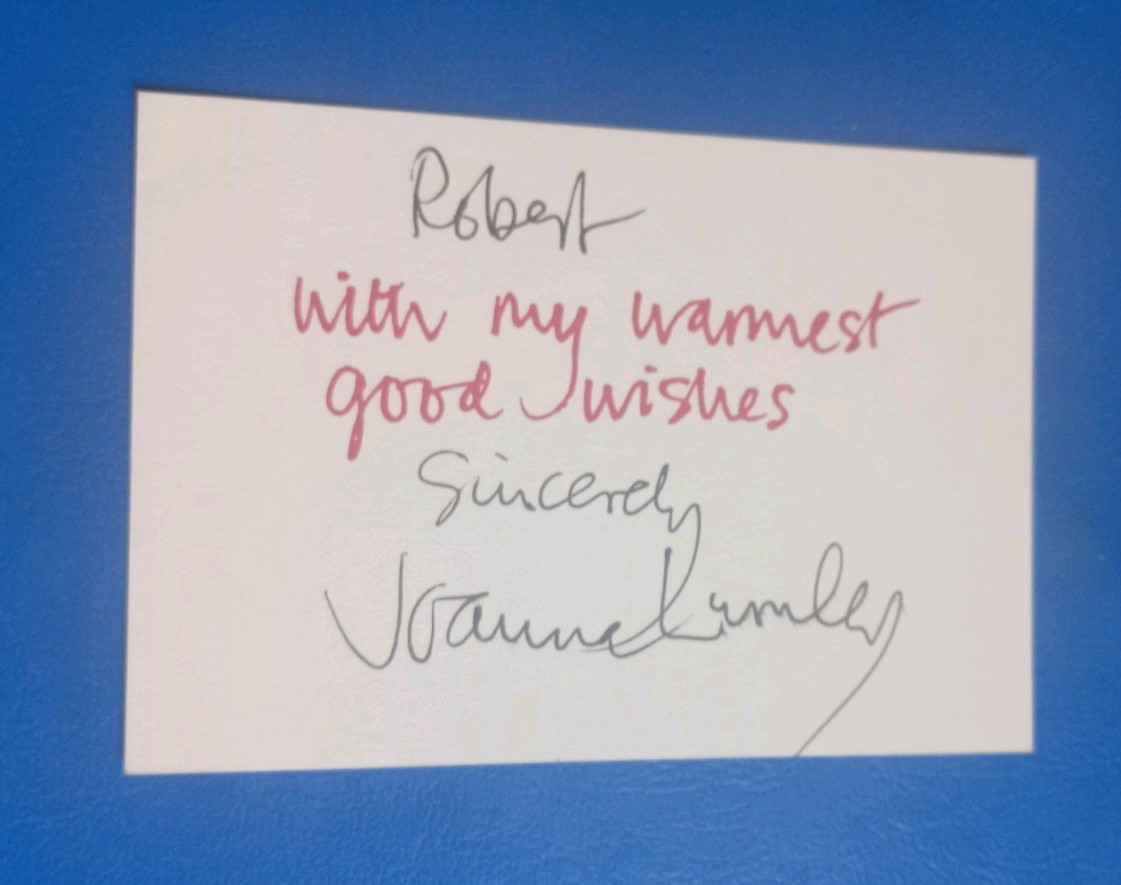 Robert
with my warmest
good wishes
Sincerely
Joanna Lumley